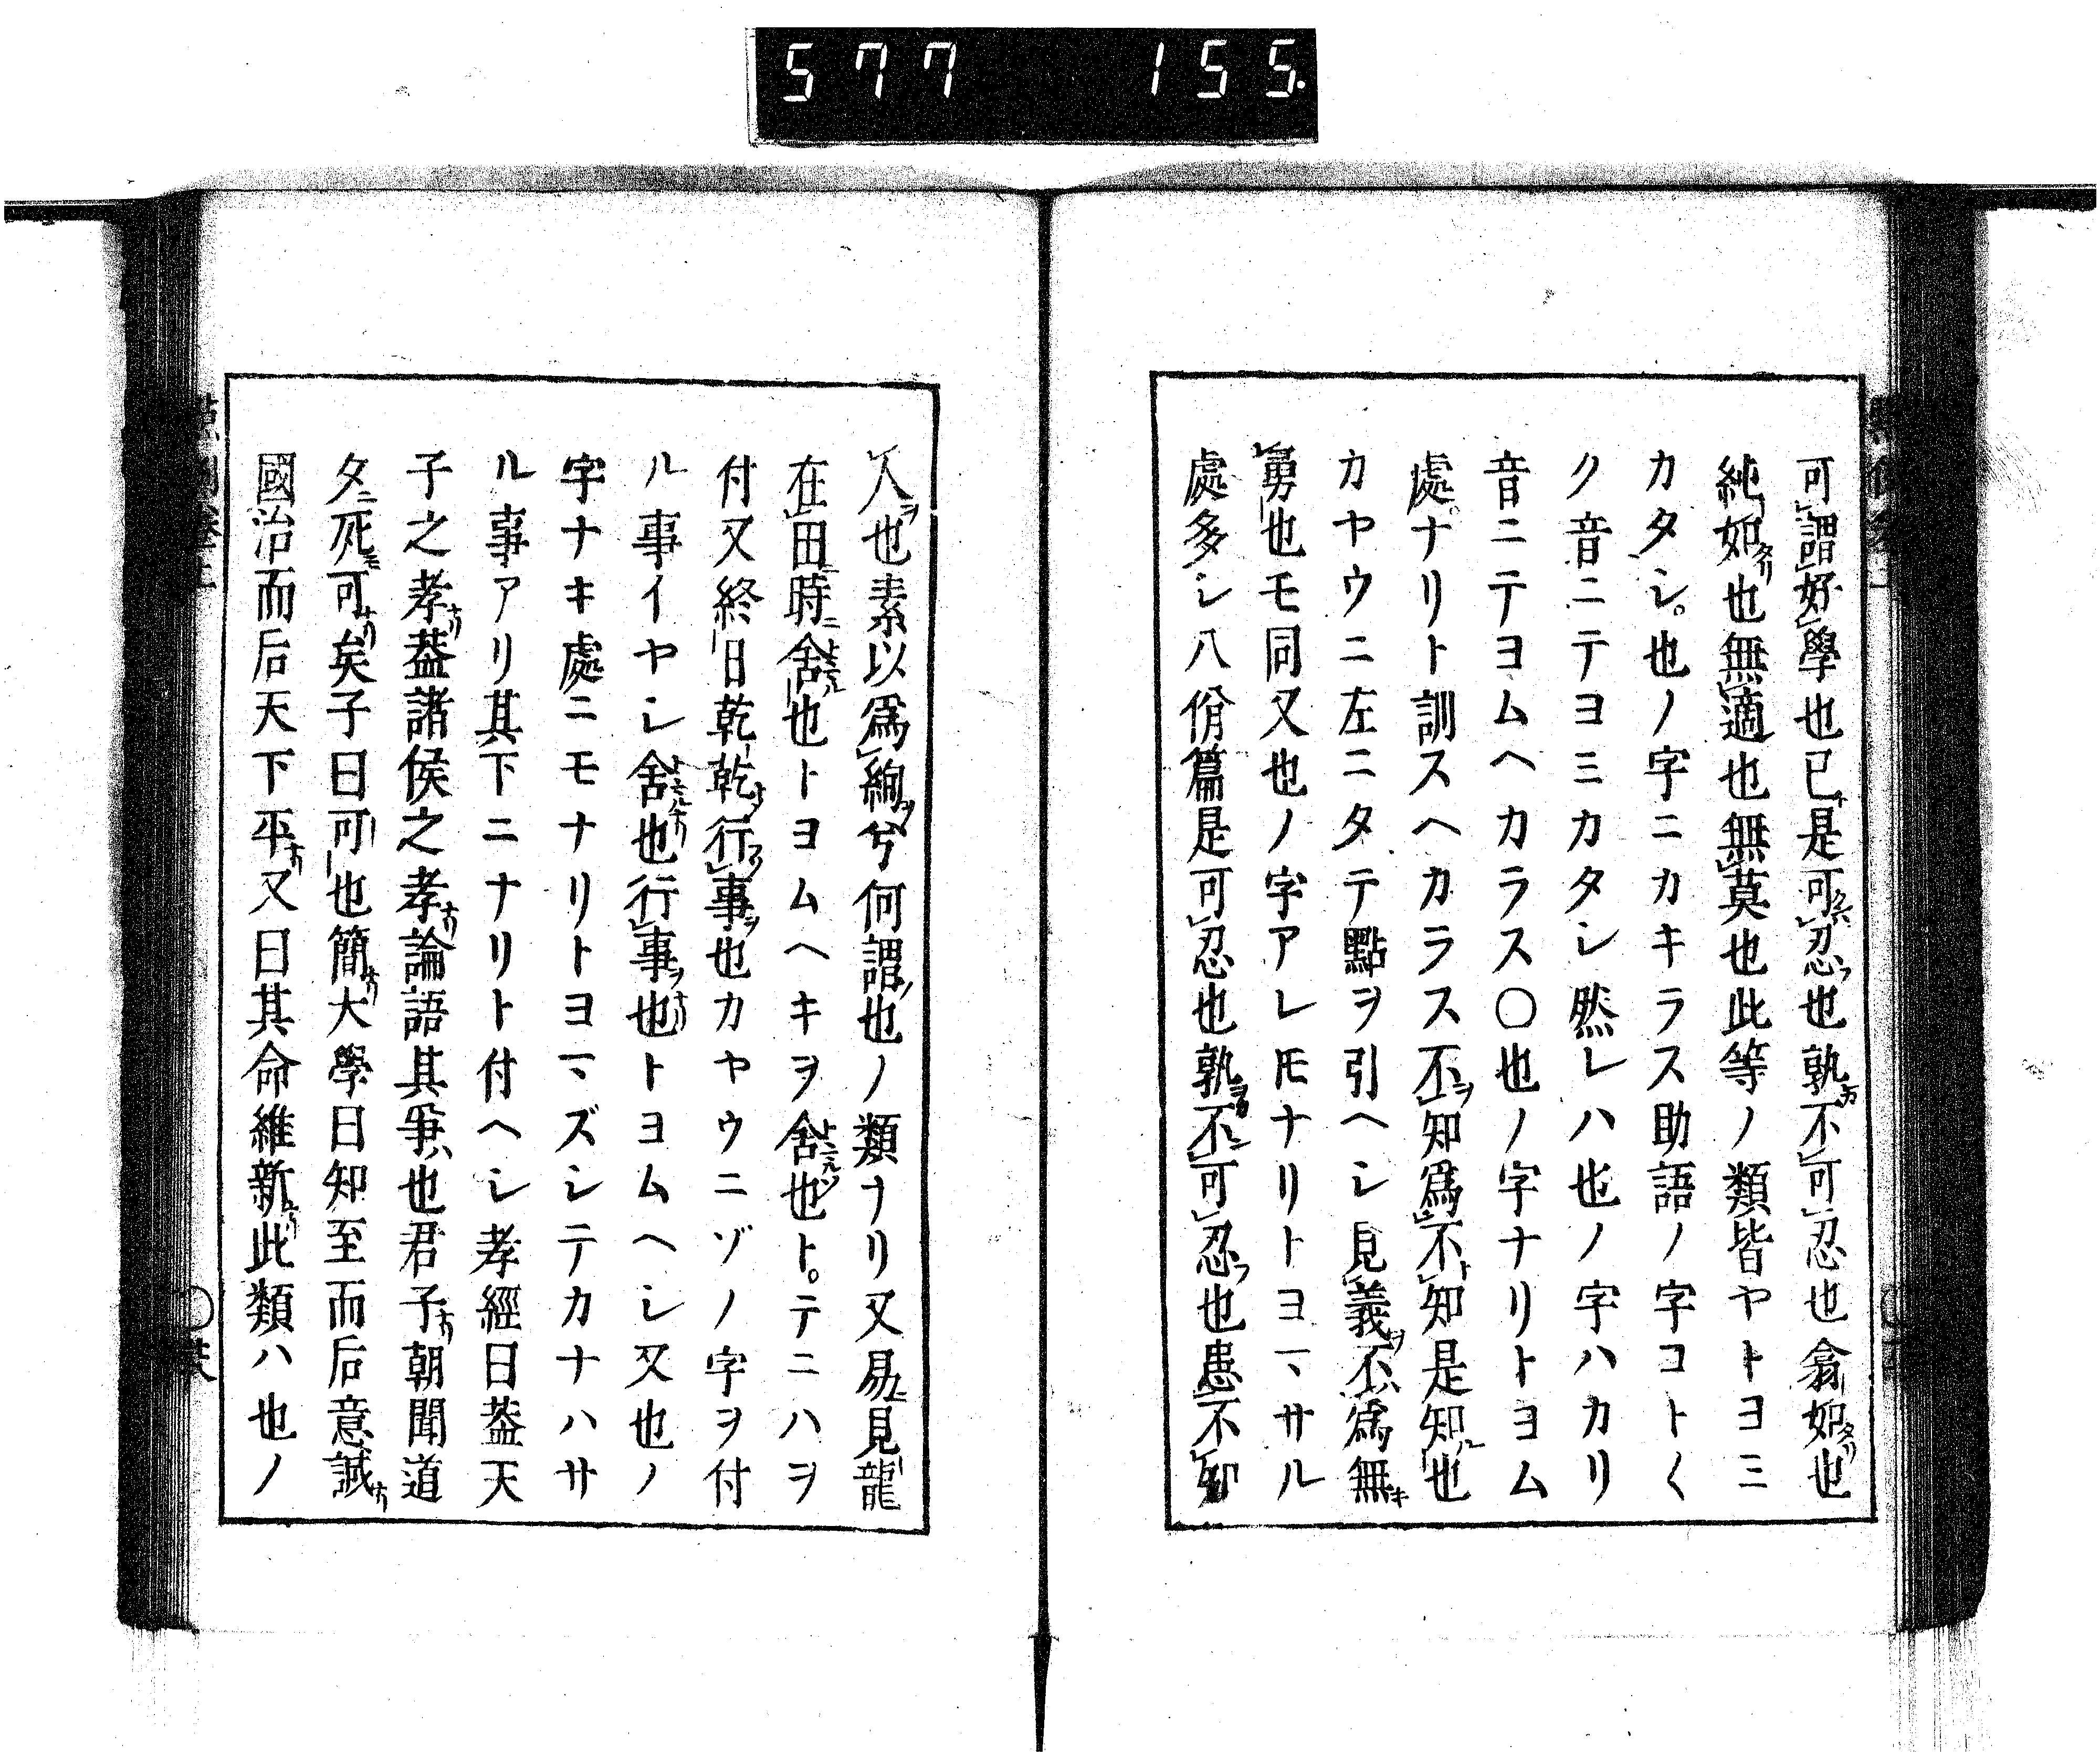 577 155.
可謂好學也已是可忍也孰不可忍也翕如也
純如也無適也無莫也此等ノ類皆ヤトヨミ
カタシ。也ノ字ニカキラス助語ノ字コト〱
ク音ニテヨミカタシ然レハ也ノ字ハカリ
音ニテヨムヘカラス〇也ノ字ナリトヨム
處ナリト訓スヘカラス不知爲不知是知也
カヤウニ左ニタテ點ヲ引ヘシ見義不爲無
勇也モ同又也ノ字アレ𪜈ナリトヨマサル
處多シ八佾篇是可忍也孰不可忍也患不知
人也素以爲絢兮何謂也ノ類ナリ又易見龍
在田時舍也トヨムヘキヲ舍也ト。テニハヲ
付又終日乾乾行事也カヤウニゾノ字ヲ付
ル事イヤシ舍也行事也トヨムヘシ又也ノ
字ナキ處ニモナリトヨマズシテカナハサ
ル事アリ其下ニナリト付ヘシ孝經曰蓋天
子之孝蓋諸侯之孝論語其爭也君子朝聞道
夕死可矣子曰可也簡大學曰知至而后意誠
國治而后天下平又曰其命維新此類ハ也ノ